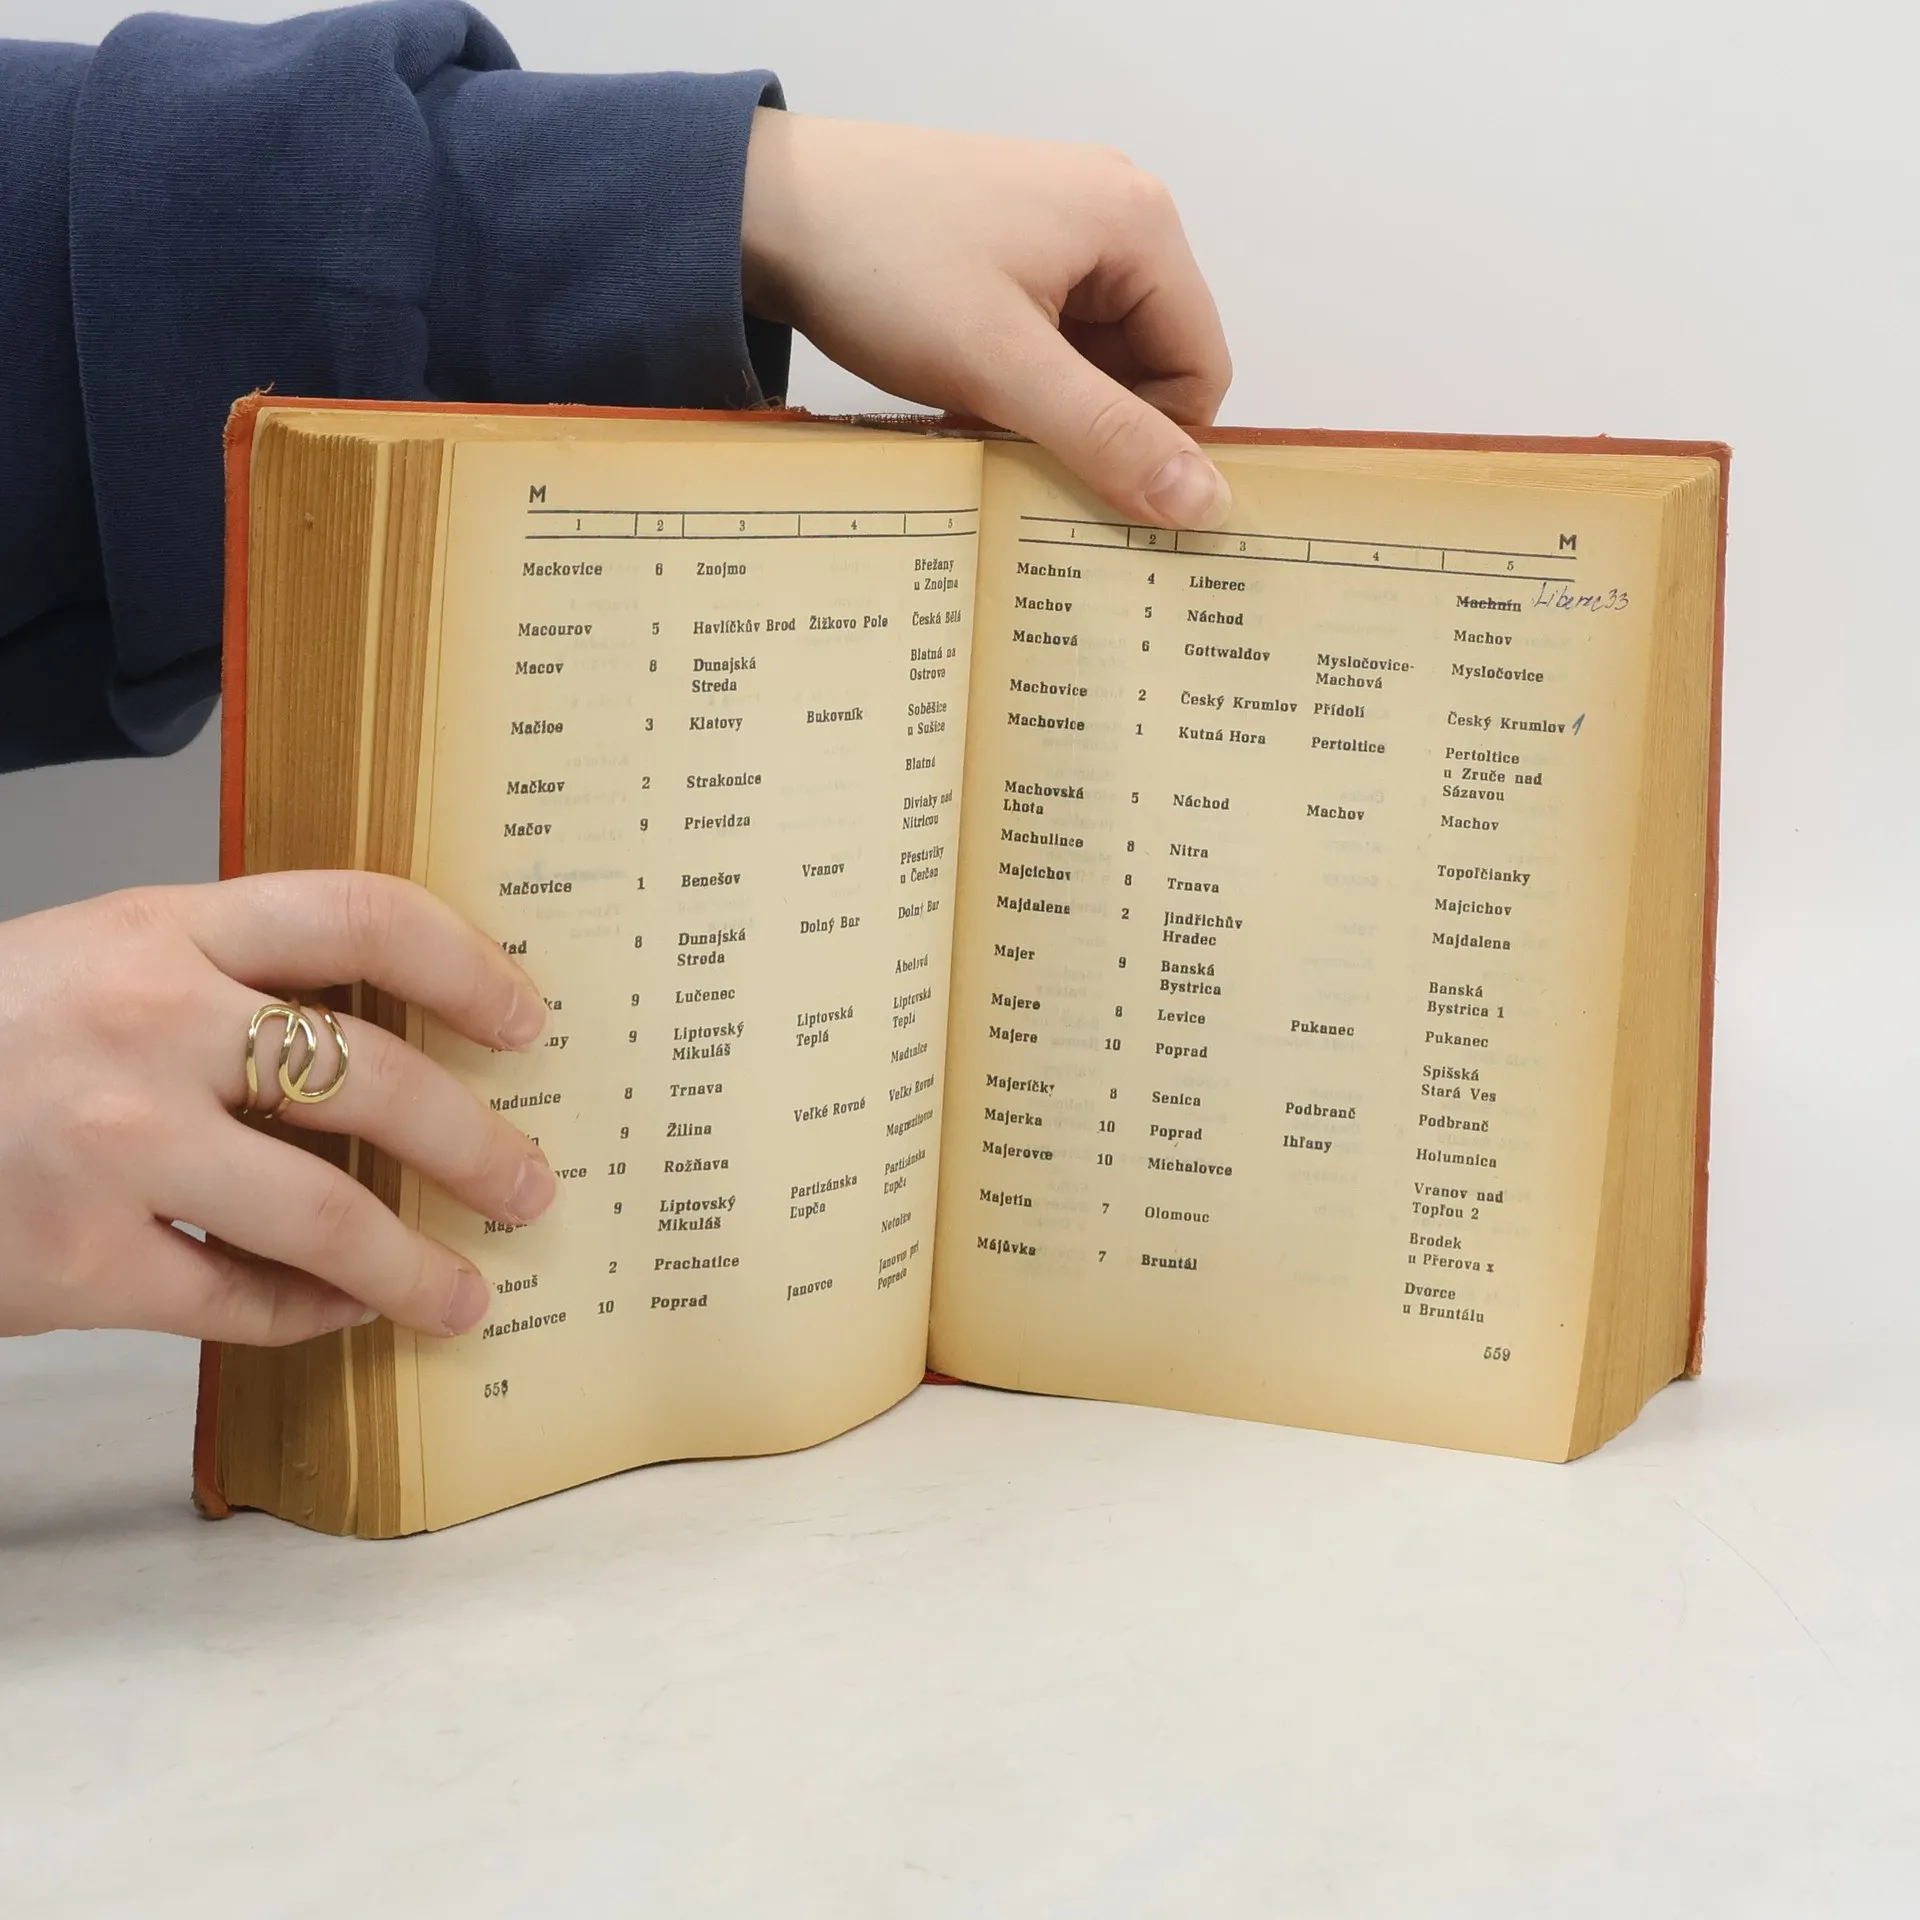 M
1 2 3 4 5
Mackovice 6 Znojmo Břežany
u Znojma
Macourov 5 Havlíčkův Brod Žižkovo Pole Česká Bělá
Macov 8 Dunajská Blatná na
Streda Ostrove
Mačice 3 Klatovy Bukovník Soběšice
u Sušice
Mačkov 2 Strakonice Blatná
Mačov 9 Prievidza Diviaky nad
Nitricou
Mačovice 1 Benešov Vranov Přestavlky
u Čerčan
Mad 8 Dunajská Dolný Bar Dolný Bar
Streda
ka 9 Lučenec Abelová
ny 9 Liptovský Liptovská Liptovská
Mikuláš Teplá Teplá
Madunice 8 Trnava Madunice
9 Žilina Veľké Rovné Veľké Rovné
vce 10 Rožňava Magnezitovce
9 Liptovský Partizánska Partizánska
Mikuláš Ľupča Ľupča
ahouš 2 Prachatice Netolice
Machalovce 10 Poprad Janovce Janovce pri
Poprade
558
M
1 2 3 4 5
Machnín 4 Liberec Machnín Liberec 33
Machov 5 Náchod Machov
Machová 6 Gottwaldov Mysločovice- Mysločovice
Machová
Machovice 2 Český Krumlov Přídolí Český Krumlov 1
Machovice 1 Kutná Hora Pertoltice Pertoltice
u Zruče nad
Sázavou
Machovská 5 Náchod Machov Machov
Lhota
Machulince 8 Nitra Topoľčianky
Majcichov 8 Trnava Majcichov
Majdalena 2 Jindřichův Majdalena
Hradec
Majer 9 Banská Banská
Bystrica Bystrica 1
Majere 8 Levice Pukanec Pukanec
Majere 10 Poprad Spišská
Stará Ves
Majeríčky 8 Senica Podbranč Podbranč
Majerka 10 Poprad Ihľany Holumnica
Majerovce 10 Michalovce Vranov nad
Topľou 2
Majetín 7 Olomouc Brodek
u Přerova x
Májůvka 7 Bruntál Dvorce
u Bruntálu
559